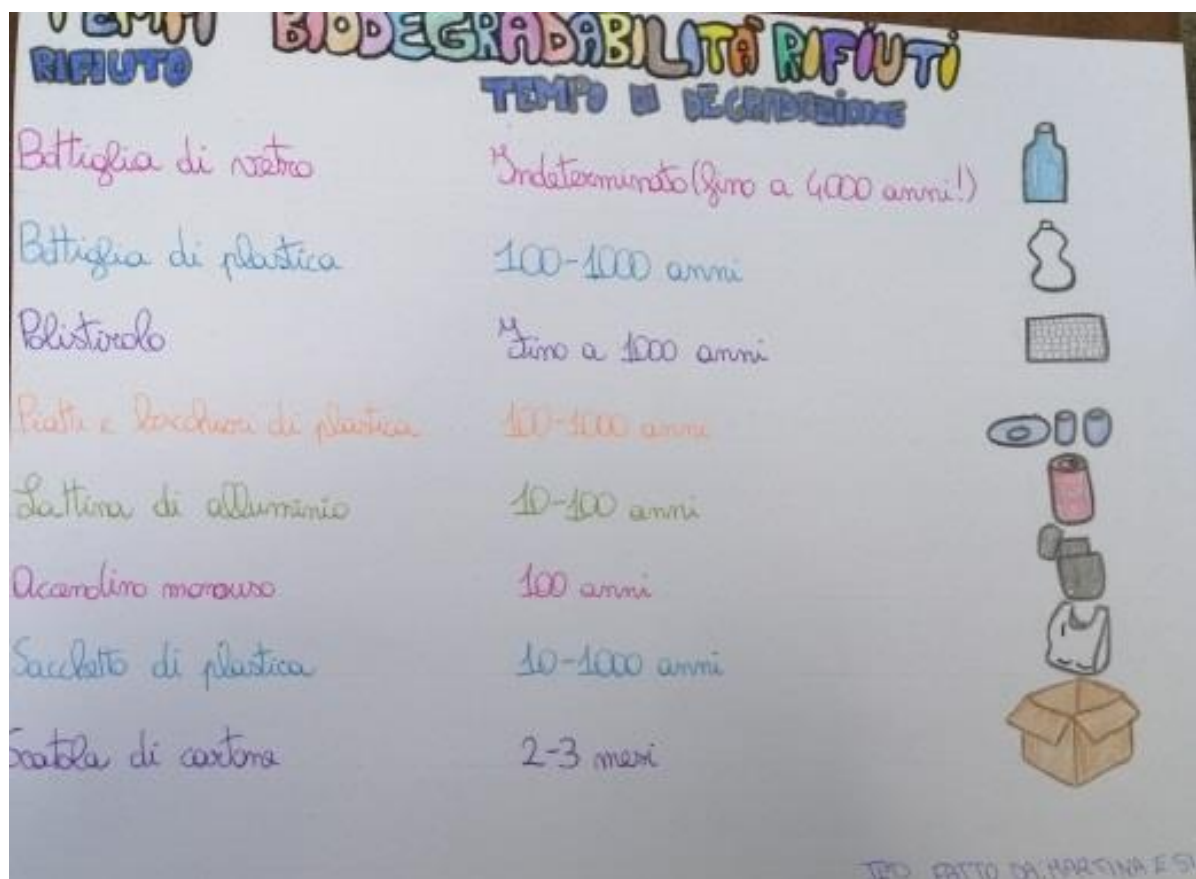 TEMPI BIODEGRADABILITÀ RIFIUTI
RIFIUTO TEMPO DI DEGRADAZIONE
Bottiglia di vetro Indeterminato (fino a 4000 anni!)
Bottiglia di plastica 100-1000 anni
Polistirolo Fino a 1000 anni
Piatti e bicchieri di plastica 100-1000 anni
Lattina di alluminio 10-100 anni
Accendino monouso 100 anni
Sacchetto di plastica 10-1000 anni
Scatola di cartone 2-3 mesi
FATTO DA: MARTINA E